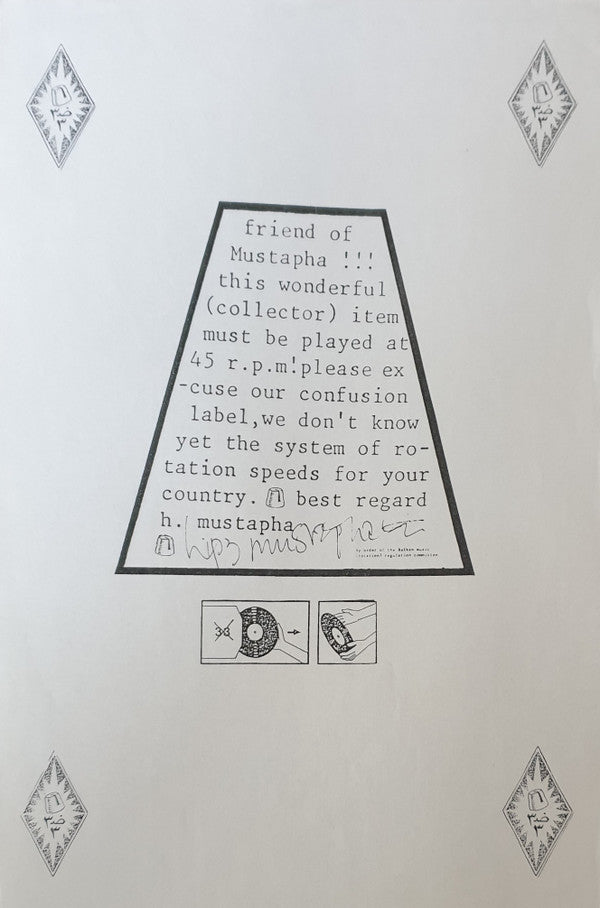 friend of
Mustapha !!!
this wonderful
(collector) item
must be played at
45 r.p.m!please ex
-cuse our confusion
label,we don't know
yet the system of ro-
tation speeds for your
country. best regard
h. mustapha
by order of the Balkan music
regulation commission
33